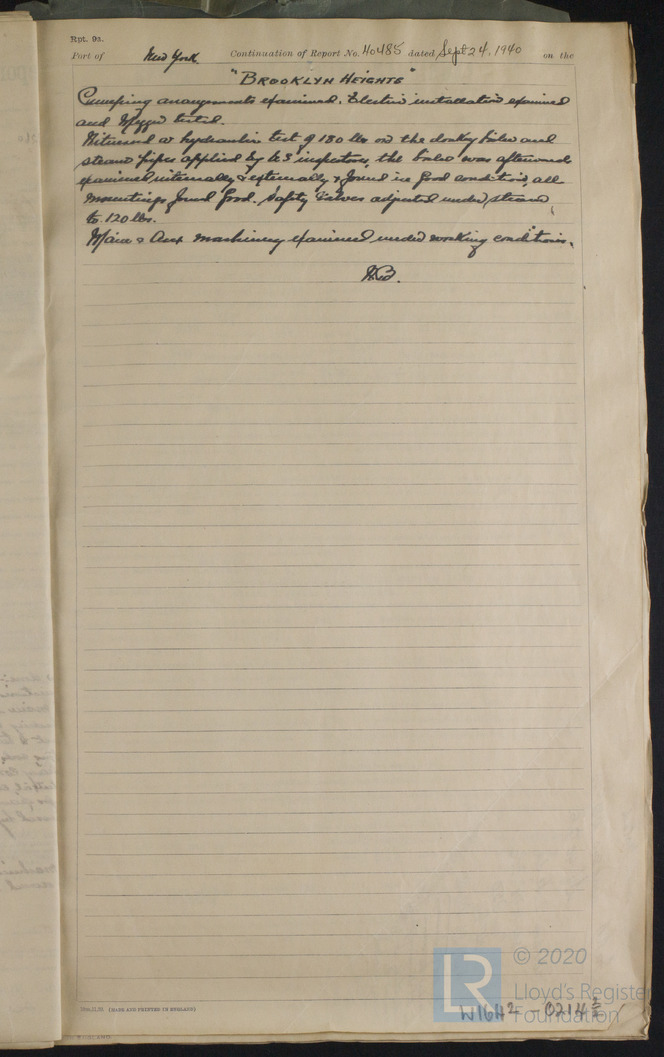 Rpt. 9a.
Port of New York. Continuation of Report No. 40485 dated Sept 24, 1940 on the
"BROOKLYN HEIGHTS"
Pumping arrangements examined. Electric installation examined
and Megger tested.
Witnessed a hydraulic test of 180 lbs on the donkey boiler and
steam pipes applied by US inspectors, the boiler was afterward
examined internally & externally & found in good condition, all
mountings found good. Safety valves adjusted under steam
to 120 lbs.
Main & Aux machinery examined under working conditions.
(MADE AND PRINTED IN ENGLAND)
© 2020
LR
Lloyd's Register
Foundation
W1642-0214